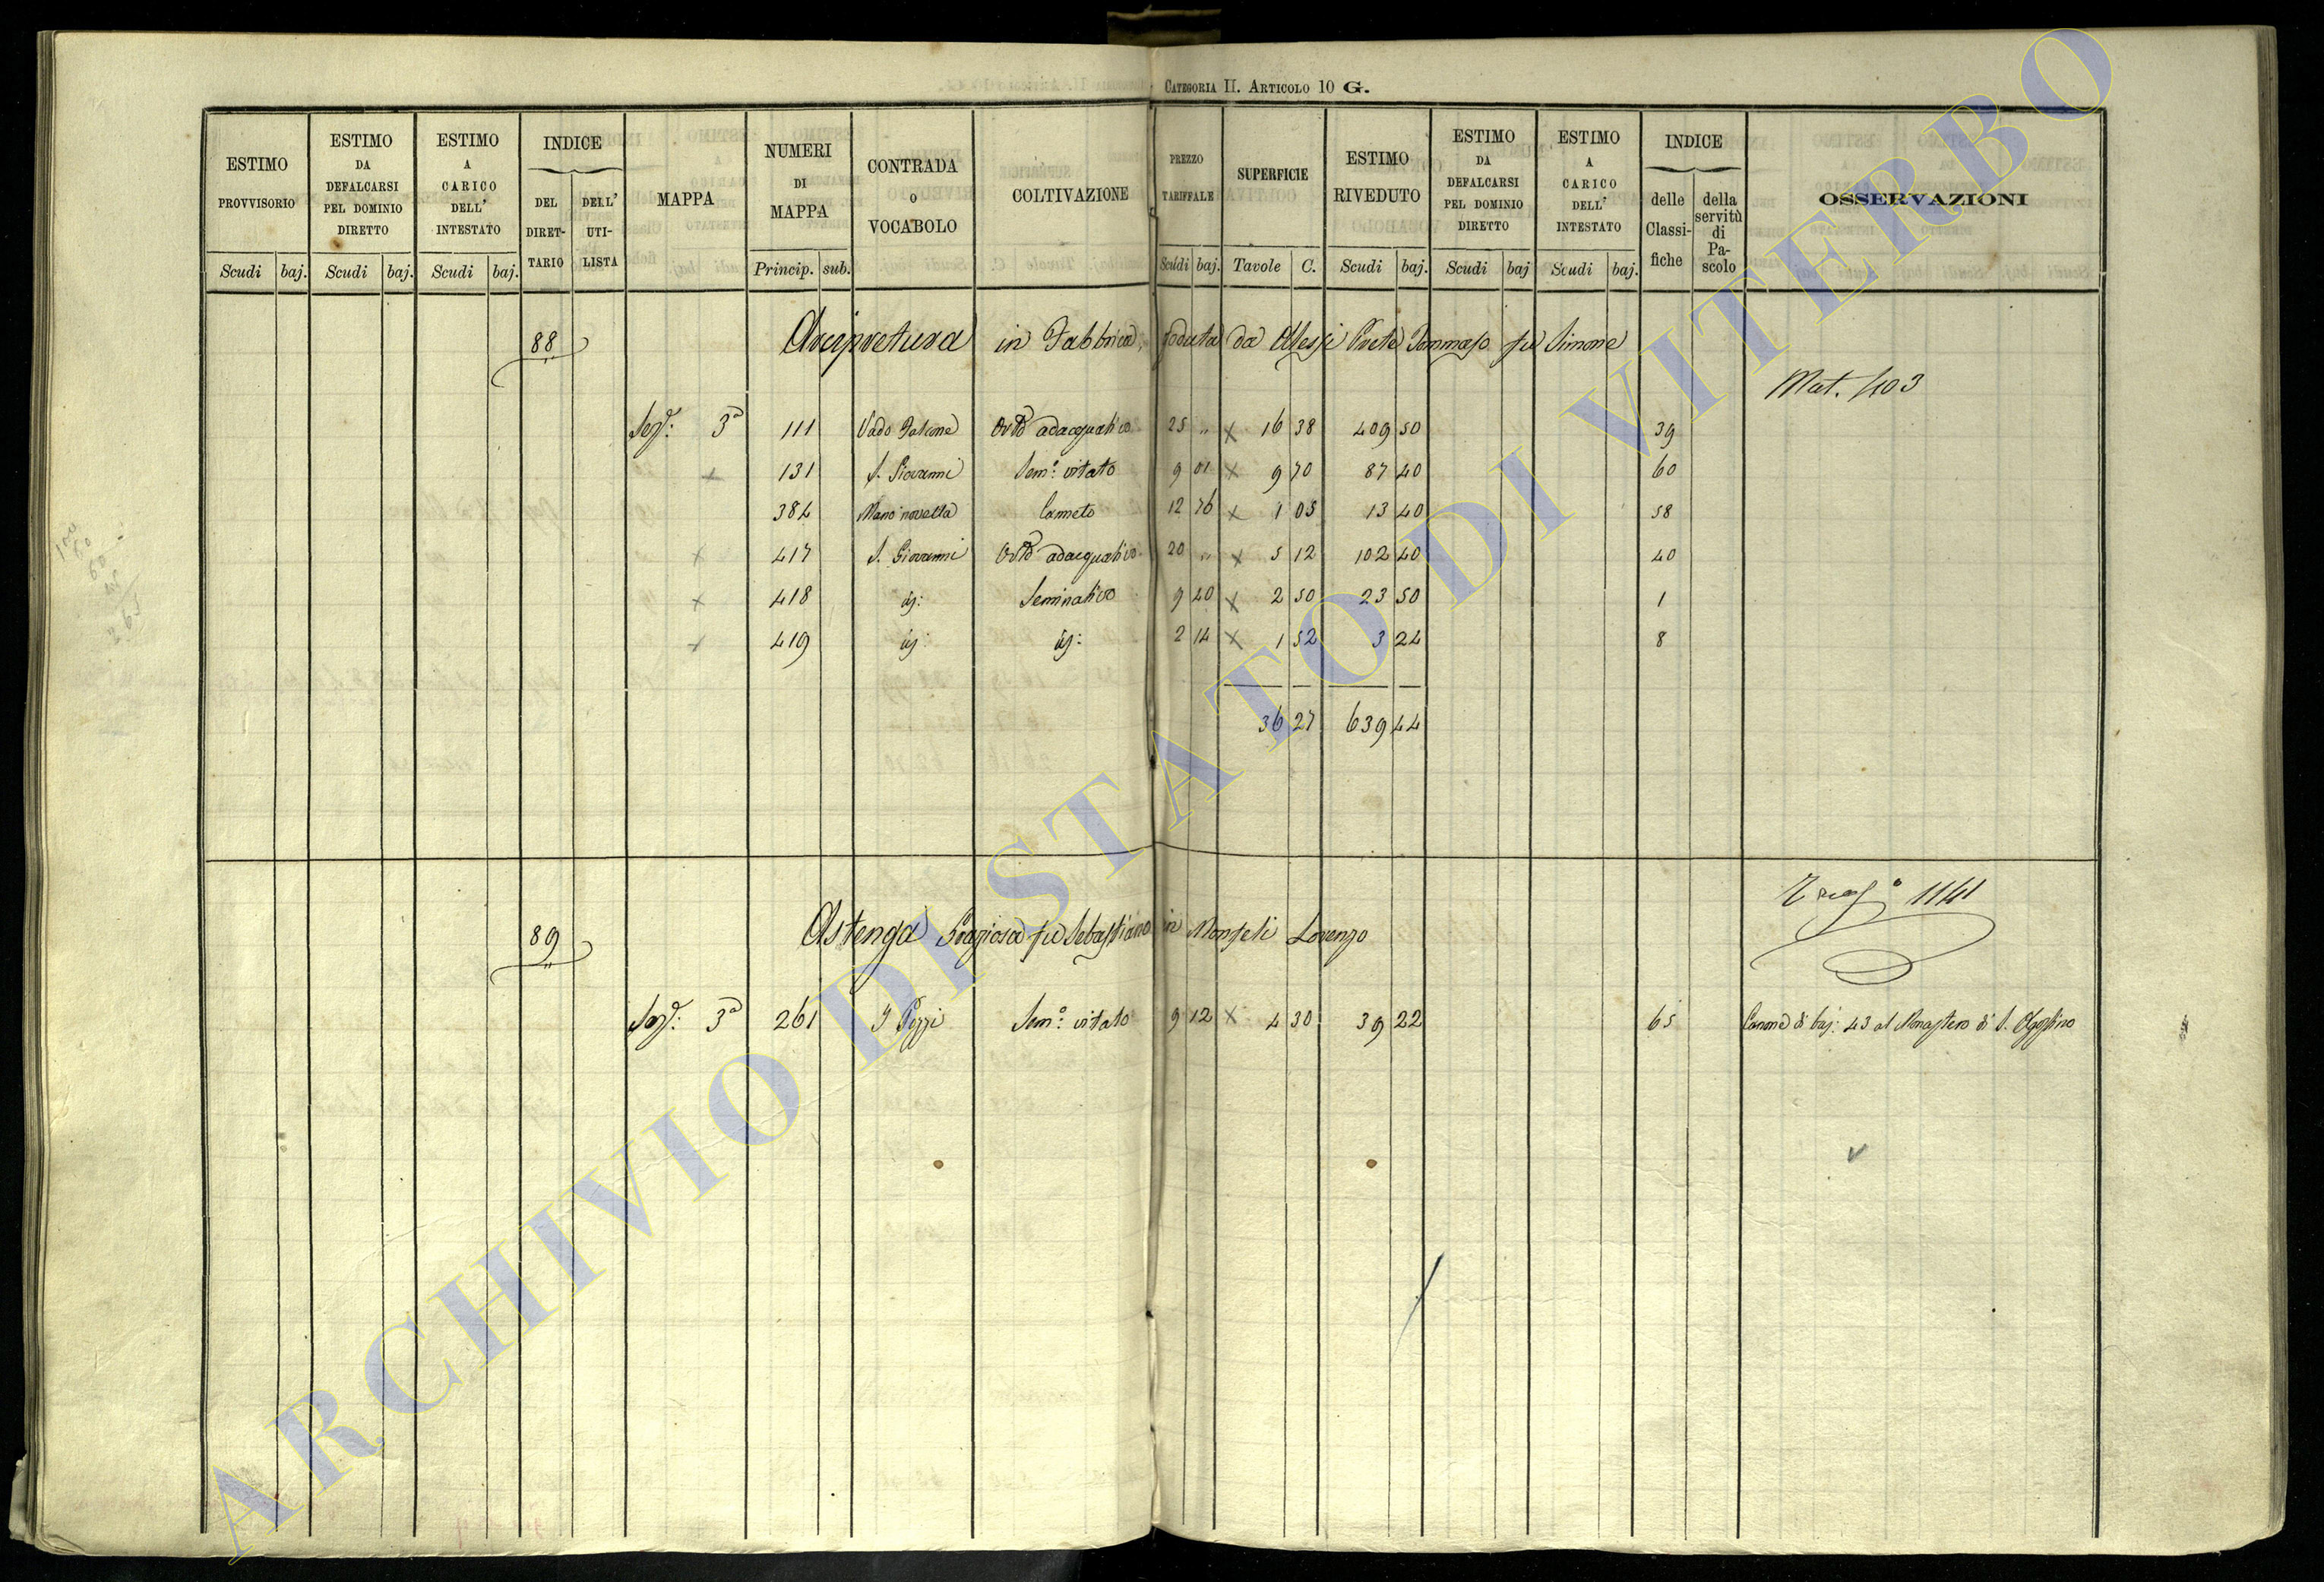 CATEGORIA II. ARTICOLO 10 G.
ESTIMO PROVVISORIO
ESTIMO DA DEFALCARSI PEL DOMINIO DIRETTO
ESTIMO A CARICO DELL' INTESTATO
INDICE
DEL DIRETTARIO
DELL' UTILISTA
MAPPA
NUMERI DI MAPPA
CONTRADA O VOCABOLO
COLTIVAZIONE
PREZZO TARIFFALE
SUPERFICIE
ESTIMO RIVEDUTO
ESTIMO DA DEFALCARSI PEL DOMINIO DIRETTO
ESTIMO A CARICO DELL' INTESTATO
INDICE
delle Classifiche
della servitù di Pascolo
OSSERVAZIONI
Scudi baj. Scudi baj. Scudi baj. Princip. sub. Scudi baj. Tavole C. Scudi baj. Scudi baj Scudi baj.
88 Arcipretura in Fabbrica, goduta da Alessi Prete Tommaso fu Simone
Mat. 403
Sez: 3a 111 Vado Falcone Orto adacquativo 25 " x 16 38 409 50 39
x 131 S. Giovanni Sem: vitato 9 01 x 9 70 87 40 60
384 Canneto 12 76 x 1 05 13 40 58
x 417 S. Giovanni Orto adacquativo 20 " x 5 12 102 40 40
x 418 id: Seminativo 9 40 x 2 50 23 50 1
x 419 id: id: 2 14 x 1 52 3 24 8
36 27 639 44
1141
89 Astenga Graziosa fu Sebastiano in Monfeli Lorenzo
Sez: 3a 261 I Pozzi Sem: vitato 9 12 x 4 30 39 22 65 Canone di baj: 43 al Monastero di S. Agostino
ARCHIVIO DI STATO DI VITERBO